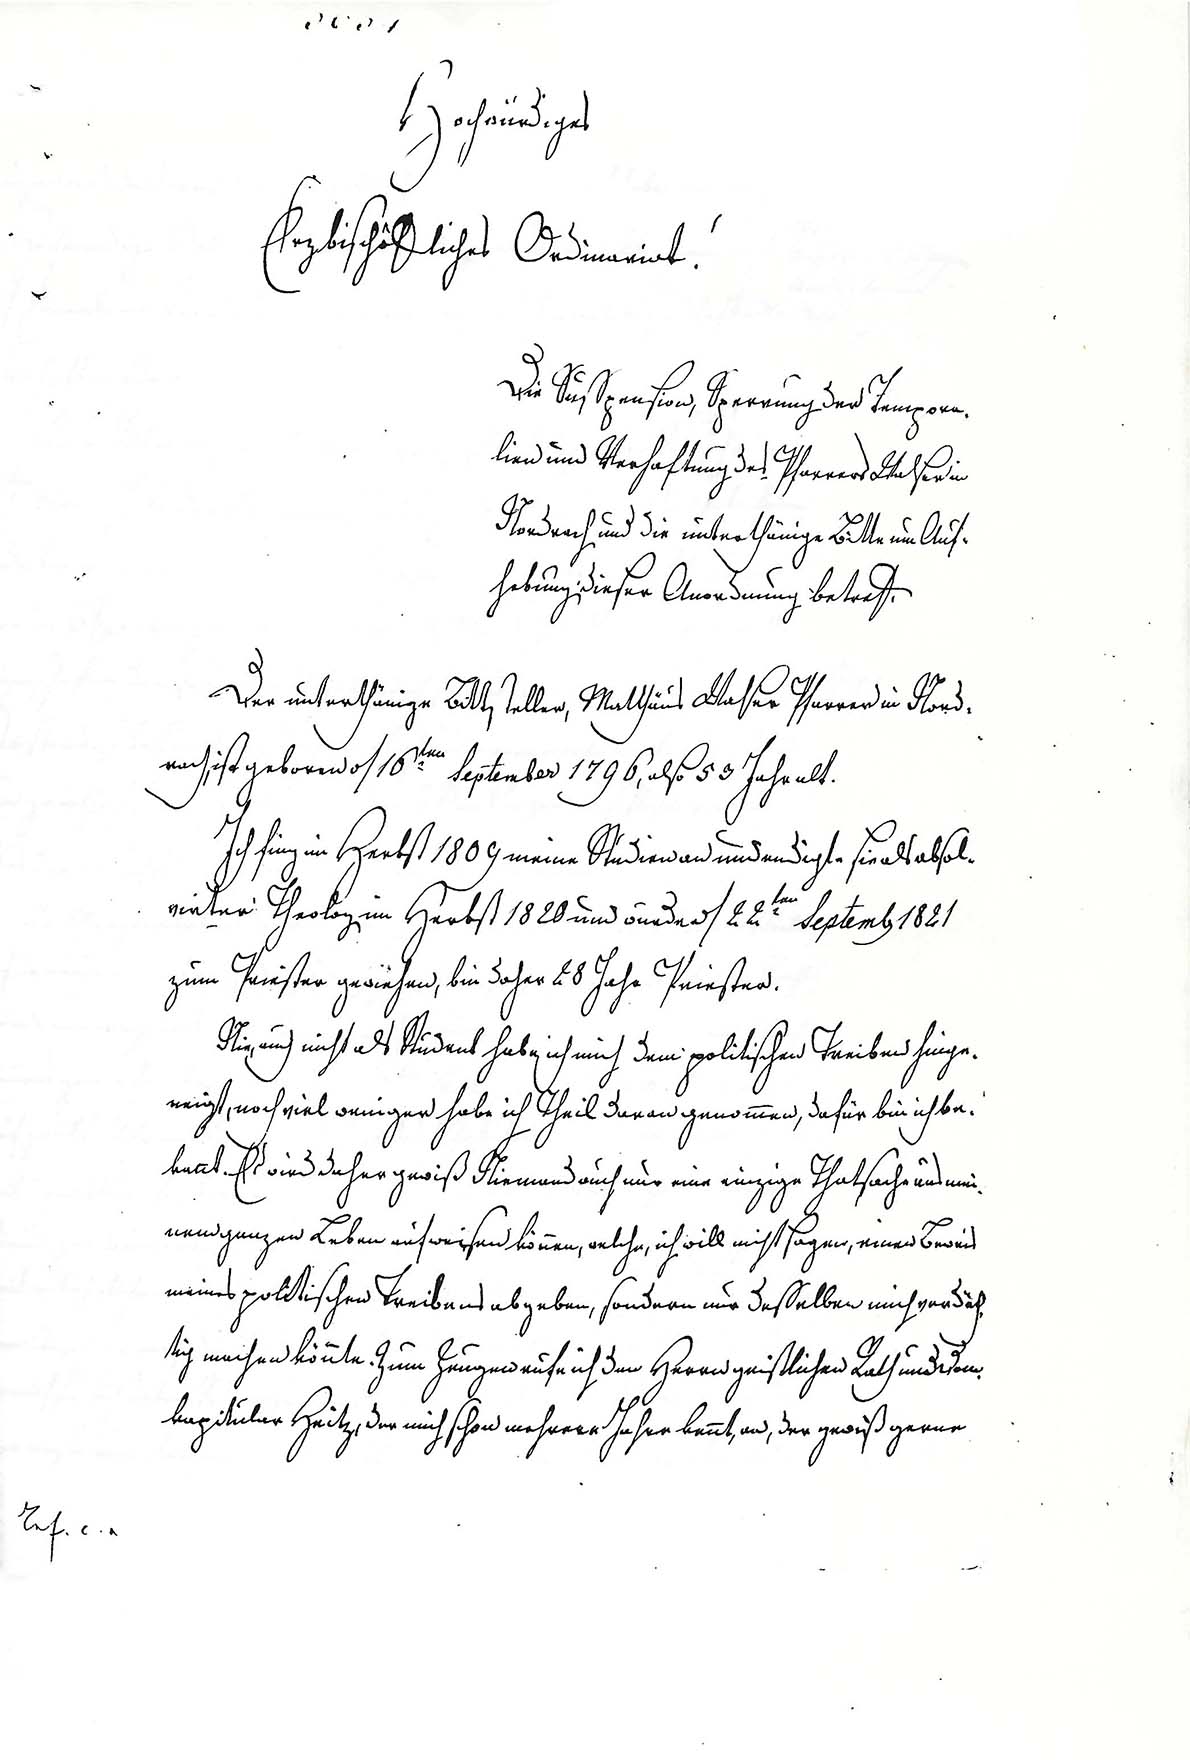 Hochwürdiges
Erzbischöfliches Ordinariat!
Die Suspension, Sperrung der Tempora-
lien und Verhaftung des Pfarrers Walser in
Nordrach und die unterthänige Bitte um Auf-
hebung dieser Anordnung betreff.
Der unterthänige Bittsteller, Matthäus Walser Pfarrer in Nord-
rach, ist geboren d 16ten September 1796, also 53 Jahr alt.
Ich fing im Herbst 1809 meine Studien an und endigte sie als absol-
virter Theolog im Herbst 1820 und wurde d 22ten Septemb 1821
zum Priester geweihen, bin daher 28 Jahr Priester.
Nie, auch nicht als Student habe ich mich dem politischen Treiben hinge-
neigt, noch viel weniger habe ich Theil daran genommen, dafür bin ich be-
kannt. Es wird daher gewiß Niemand auch nur eine einzige Thatsache aus mei-
nem ganzen Leben aufweisen können, welche, ich will nicht sagen, einen Beweis
meines politischen Treibens abgeben, sondern nur desselben mich verdäch
tig machen könnte. Zum Zeugen rufe ich den Herrn geistlichen Rath und Dom-
kapitular Heitz, der mich schon mehrere Jahre kennt, an, der gewiß gerne